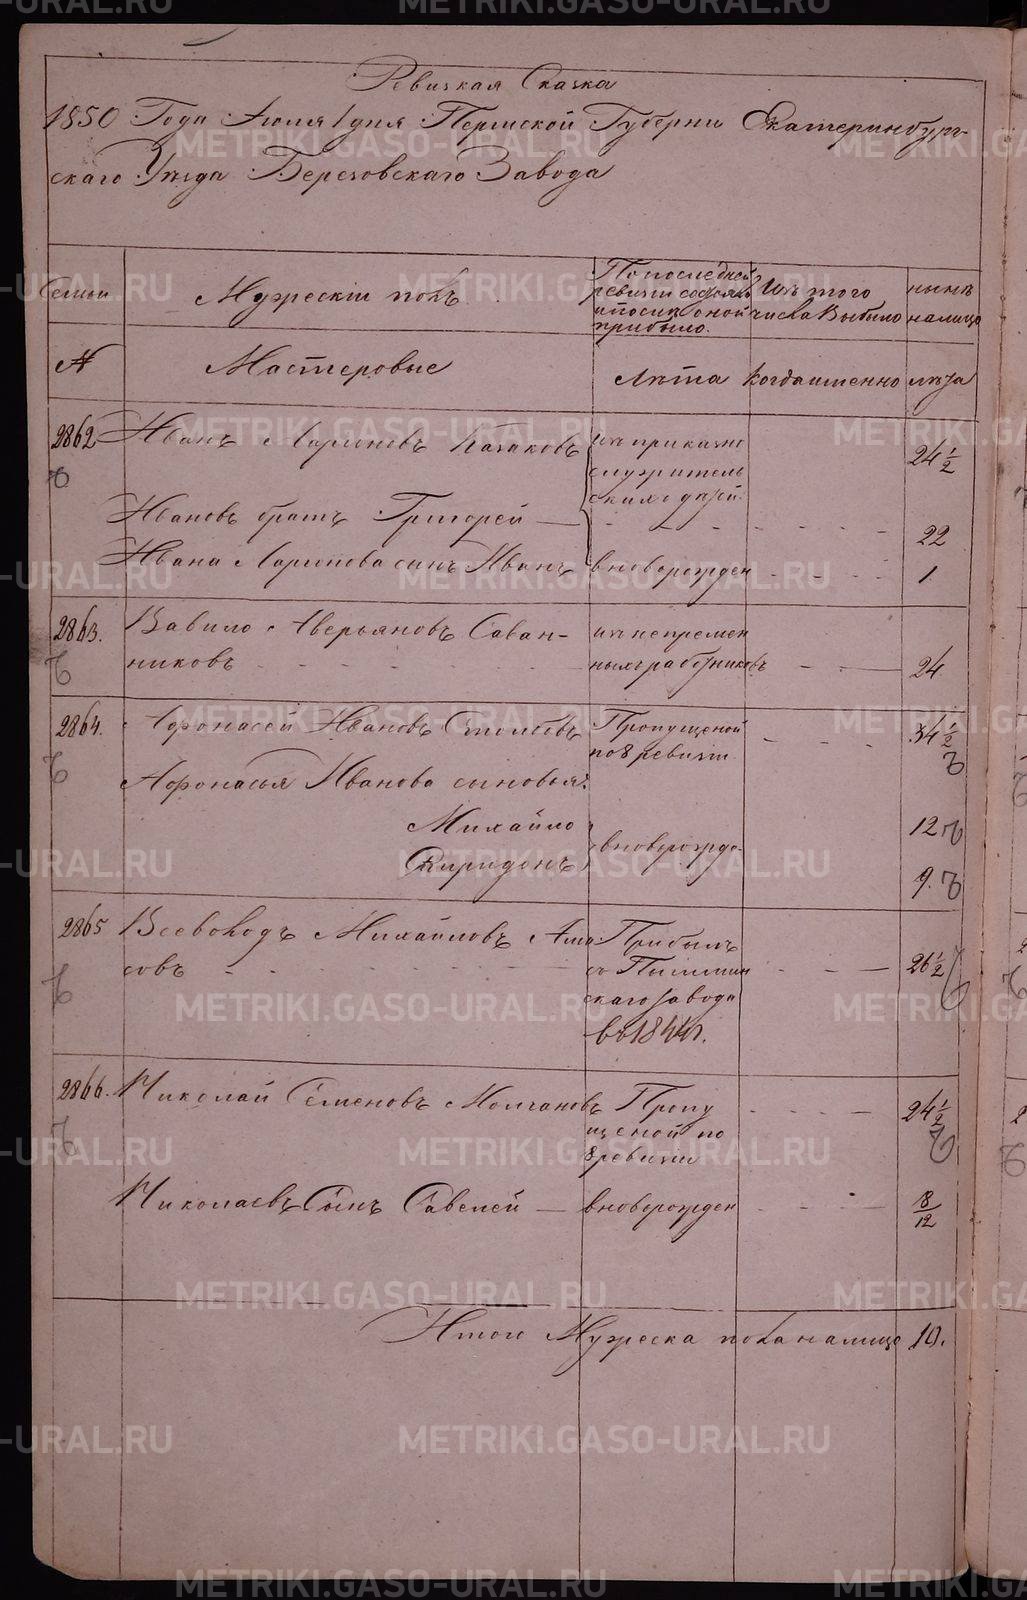 Ревизкая Сказка
1850 Года Июля 1 дня Пермской Губернии Екатеринбург-
скаго Уѣзда Березовскаго Завода
Семьи
Мужескій полъ
По последней
ревизіи состояло
и после оной
прибыло.
Изъ того
числа Выбыло
нынѣ
налицо
№
Мастеровые
Лѣта
когда именно
лѣта
2862
Иванъ Ларионовъ Казаковъ
изъ приказно
служитель
скихъ дѣтей
24 1/2
Ивановъ братъ Григорей
22
Ивана Ларионова сынъ Иванъ
вноворожден
1
2863.
Вавило Аверьяновъ Саван-
никовъ
изъ непремен
ныхъ работниковъ
24
2864.
Афонасей Ивановъ
Пропущеной
по 8 ревизіи
34 1/2
Афонасья Ивановa сыновья:
Михайло
12
Спиридонъ
вноворожде
9.
2865
Всеволодъ Михайловъ Ама
совъ
Прибылъ
съ Пышмин
скаго завода
въ 1844 г.
26 1/2
2866.
Николай Семеновъ Молчановъ
Пропу
щеной по
8 ревизіи
24 1/2
Николаевъ Сынъ Савелей
вноворожден
8/12
Итого Мужеска пола налицо 10.
METRIKI.GASO-URAL.RU